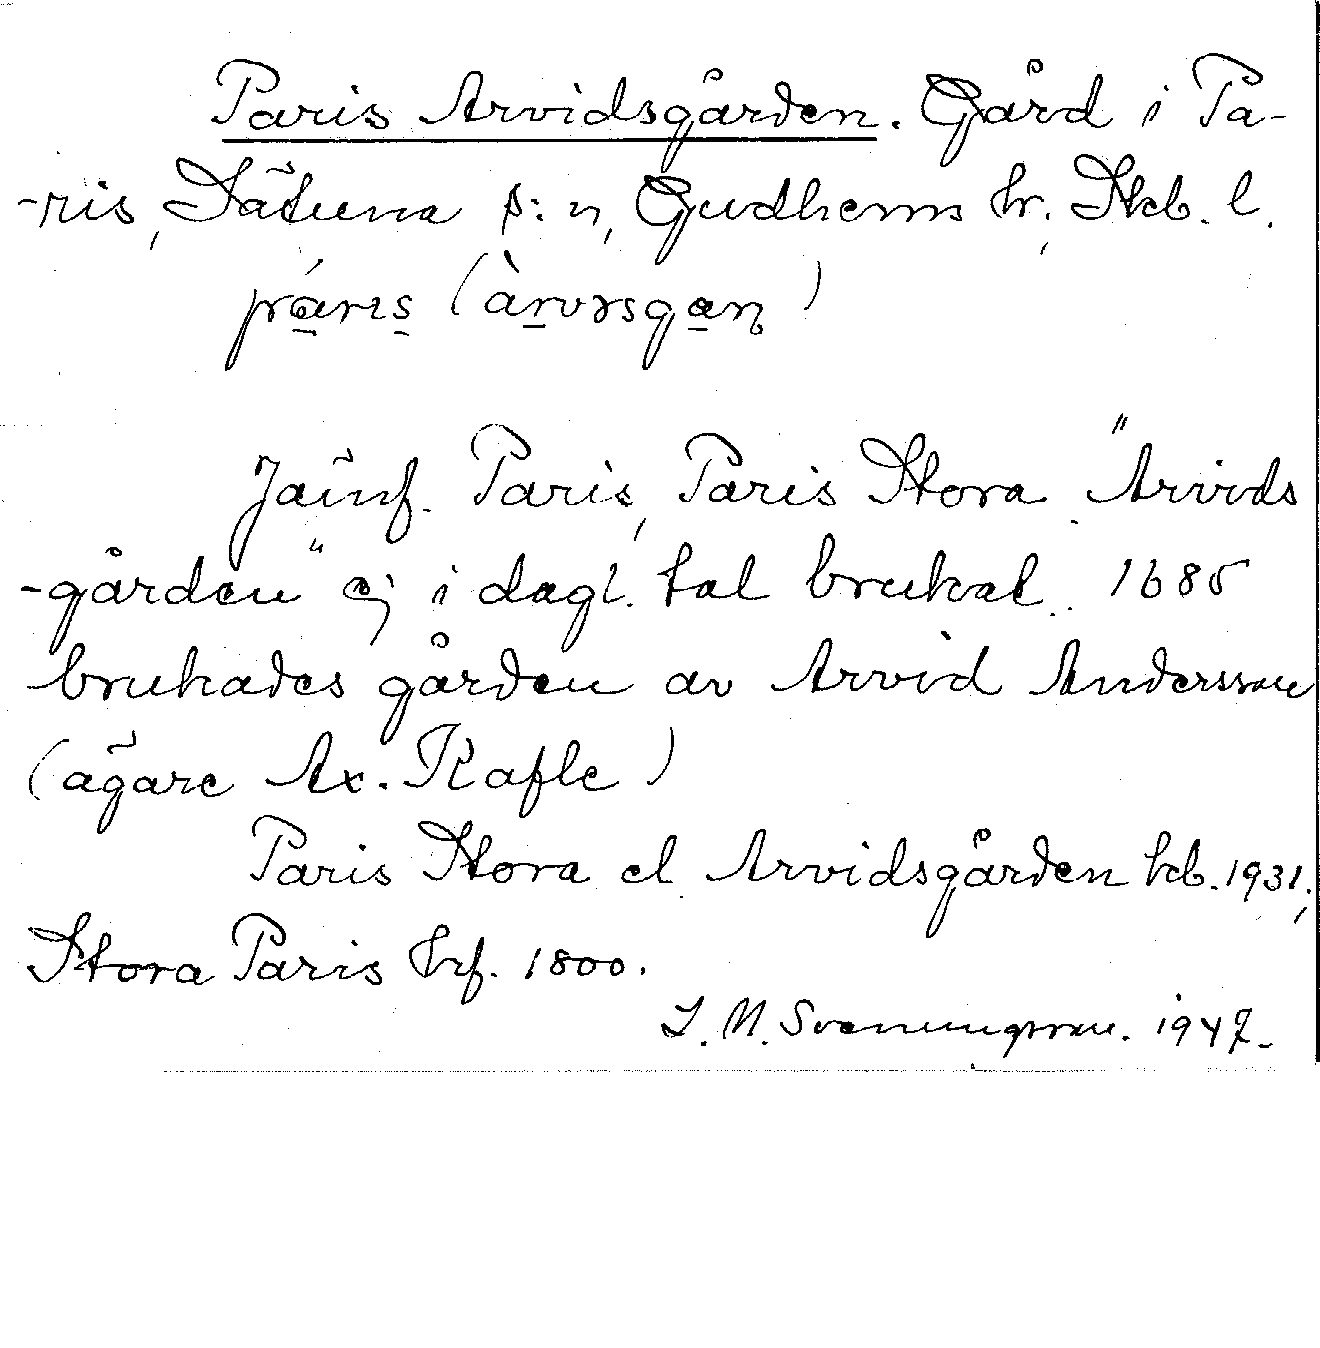 Paris Arvidsgården. Gård i Pa-
-ris, Sätuna s:n, Gudhems hr, Skb. l.
páris (àrvəsgan)
Jämf. Paris, Paris Stora. "Arvids
-gården" ej i dagl. tal brukat. 1685
brukades gården av Arvid Andersson
(ägare Ax. Kafle)
Paris Stora el Arvidsgården kb. 1931,
Stora Paris hrf. 1800.
S. N. Svenungsson. 1947.